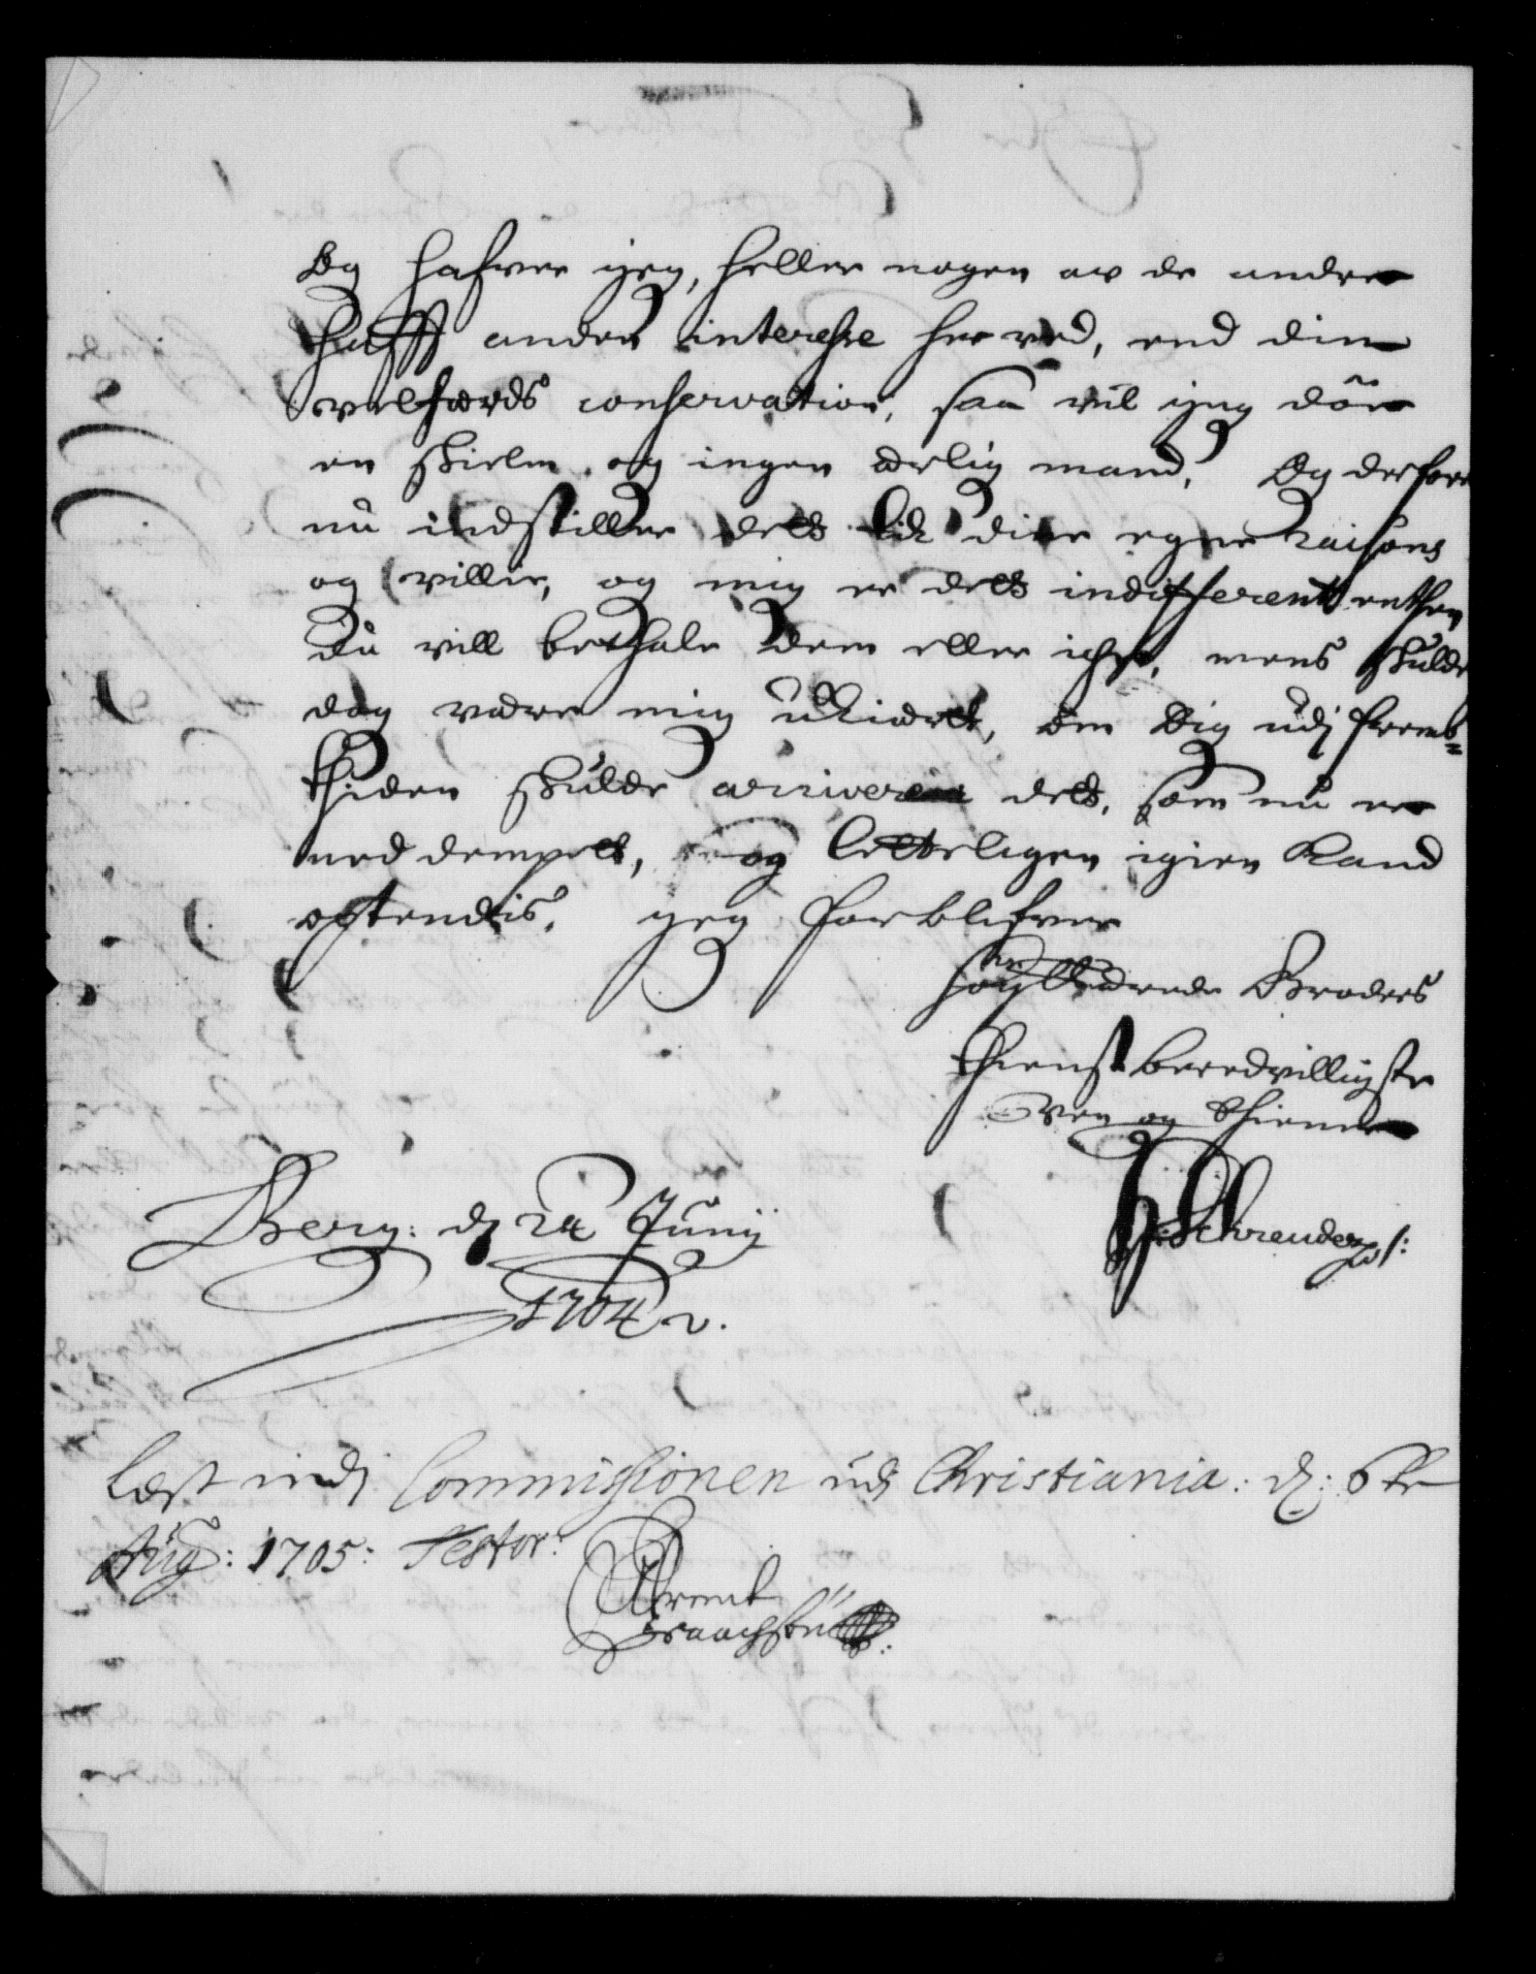 Og hafver jeg, heller nogen av de andre
hafft anden interesse her ved, end din
velferds conservation, saa vil jeg döe
en skielm og ingen ærlig mand, Og derfore
nu indstiller dett til dine egne raisons
og villie, og mig er dett indifferent enthen
du vill bethale dem eller iche, mens skulde
dog være mig ukiært, om dig udj fremb=
thiden skulde arrivere dett, som nu er
neddempett, og letteligen igien kand
optendis, jeg forblifver
Broders
thienstberedvilligste
Ven og thiener
Berg: d 24 Junij
1704
Schrender
Læst indj Commissionen udj Christiania: d: 6te
Aug: 1705: Testor: